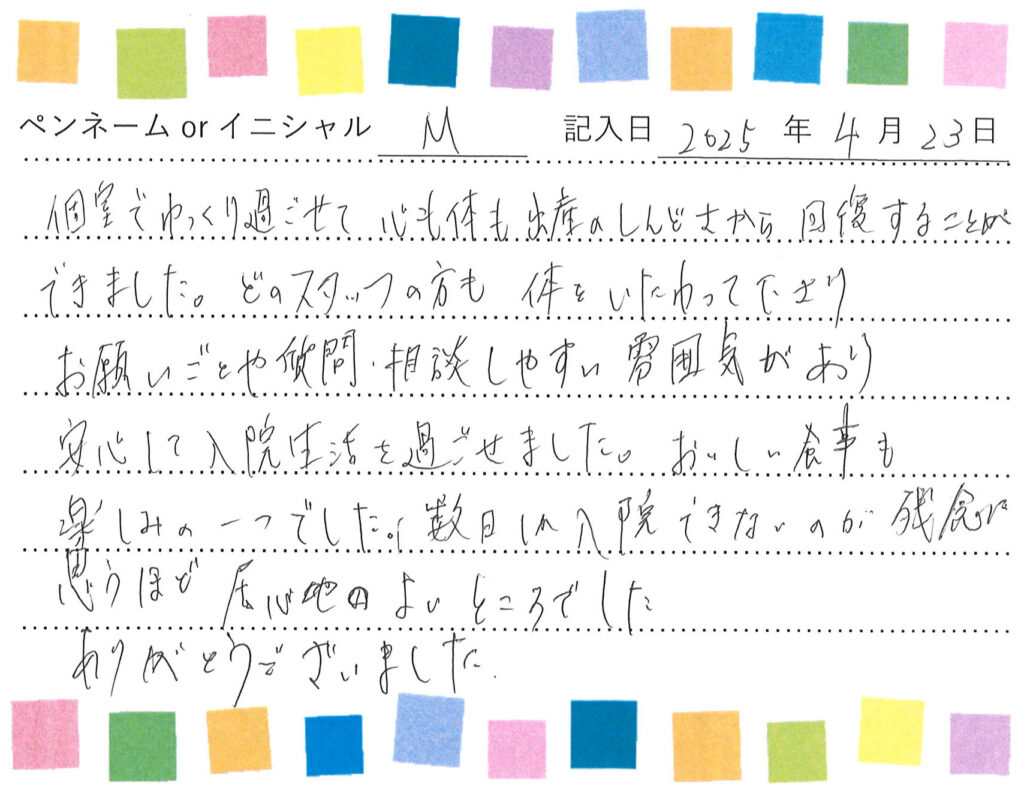 ペンネーム or イニシャル M 記入日 2025 年 4 月 23 日
個室でゆっくり過ごせて 心も体も出産のしんどさから 回復することが
できました。どのスタッフの方も 体をいたわって下さり
お願いごとや質問・相談しやすい雰囲気があり
安心して入院生活を過ごせました。おいしい食事も
楽しみの一つでした。数日しか入院できないのが残念に
思うほど 居心地のよいところでした
ありがとうございました.